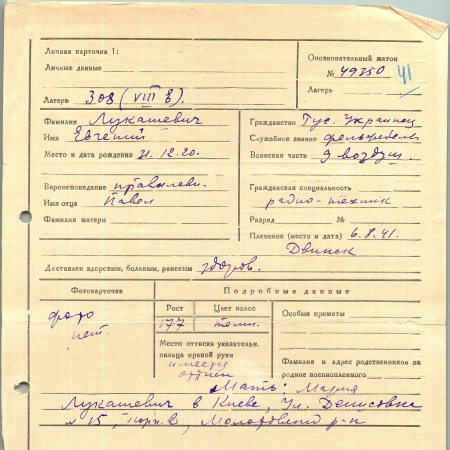 Личная карточка 1:
Личные данные
Опознавательный жетон
№ 49350 41
Лагерь 308 (VIII в).
Лагерь
Фамилия Лукашевич
Имя Евгений
Место и дата рождения 21.12.20.
Гражданство Рус. Украинец
Служебное звание фельдфебель
Воинская часть 9 воздуш.
Вероисповедание
Имя отца Павел
Фамилия матери
Гражданская специальность
радио-техник
Разряд №
Пленение (место и дата) 6.8.41.
Двинск
Доставлен здоровым, больным, раненым здоров.
Фотокарточка
Подробные данные
фото
нет.
Рост
177
Цвет волос
темн.
Место оттиска указательн.
пальца правой руки
имеется
оттиск
Особые приметы
Фамилия и адрес родственников на
родине военнопленного
Мать: Мария
Лукашевич в Киеве, Ул. Денисовка
№ 15, корп. 2, р-н